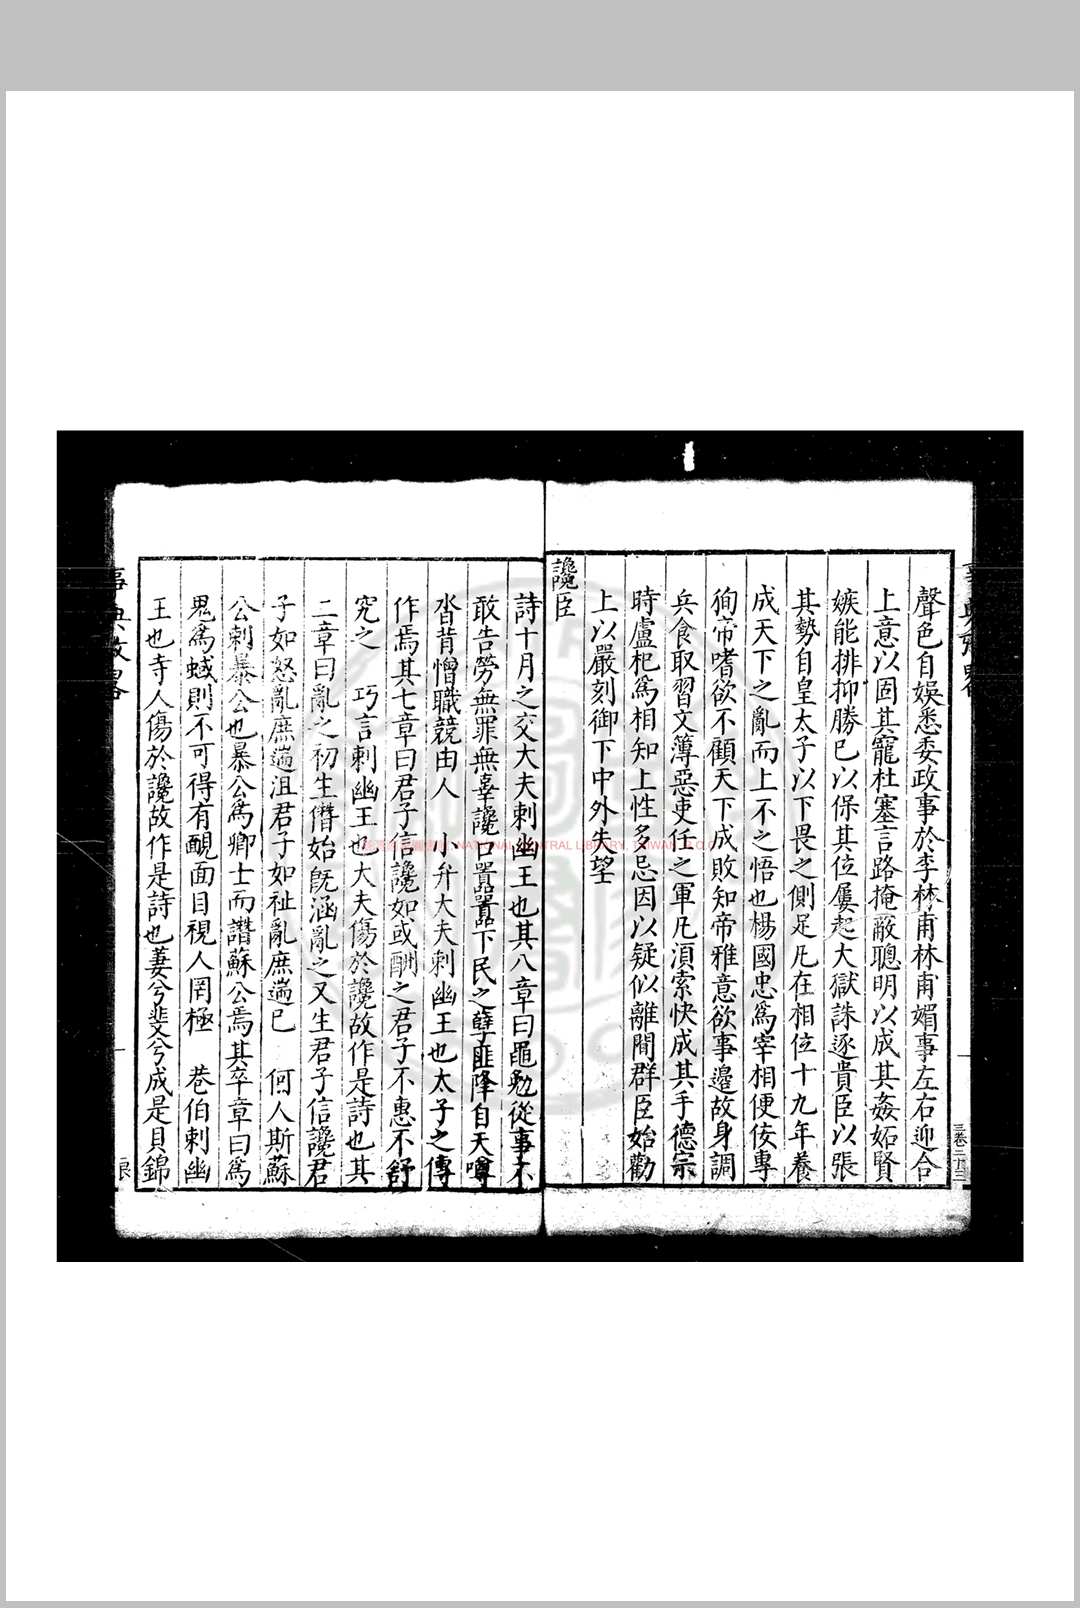 聲色自娛悉委政事於李林甫林甫媚事左右迎合
上意以固其寵杜塞言路掩蔽聰明以成其姦妬賢
嫉能排抑勝已以保其位屢起大獄誅逐貴臣以張
其勢自皇太子以下畏之側足凡在相位十九年養
成天下之亂而上不之悟也楊國忠爲宰相便侫專
徇帝嗜欲不顧天下成敗知帝雅意欲事邊故身調
兵食取習文簿惡吏任之軍凡湏索快成其手德宗
時盧杞爲相知上性多忌因以疑似離間群臣始勸
上以嚴刻御下中外失望
讒臣
詩十月之交大夫刺幽王也其八章曰黽勉從事不
敢告勞無罪無辜讒口囂囂下民之孽匪降自天噂
沓背憎職競由人 小弁大夫刺幽王也太子之傳
作焉其七章曰君子信讒如或酬之君子不惠不舒
究之 巧言刺幽王也大夫傷於讒故作是詩也其
二章曰亂之初生僭始旣涵亂之又生君子信讒君
子如怒亂庶遄沮君子如祉亂庶遄已 何人斯蘇
公刺暴公也暴公爲卿士而譖蘇公焉其卒章曰爲
鬼爲蜮則不可得有靦面目視人罔極 巷伯刺幽
王也寺人傷於讒故作是詩也萋兮斐兮成是貝錦
NATIONAL CENTRAL LIBRARY, TAIWAN, R.O.C